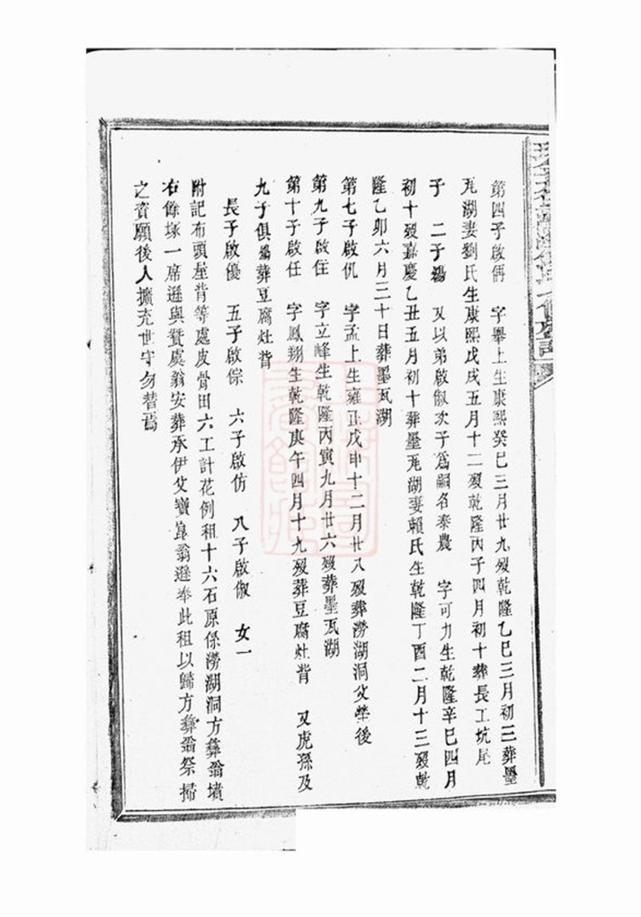 第四子啟 字舉上生康熙癸巳三月廿九歿乾隆乙巳三月初三葬墨
旡湖妻劉氏生康熙戊戌五月十二歿乾隆丙子四月初十葬長工坑尾
子 二子殤 又以弟啟俶次子爲嗣名泰農 字可力生乾隆辛巳四月
初十歿嘉慶乙丑五月初十葬墨旡湖妻賴氏生乾隆丁酉二月十三歿乾
隆乙卯六月三十日葬墨瓦湖
第七子啟 字孟上生雍正戊申十二月廿八歿葬澇湖洞父塋後
第九子啟住 字立峰生乾隆丙寅九月廿六歿葬墨瓦湖
第十子啟任 字鳳翔生乾隆庚午四月十九歿葬豆腐灶背 又虎孫及
九子俱葬豆腐灶背
長子啟優 五子啟倧 六子啟仿 八子啟俶 女一
附記布頭屋背等處皮骨田六工計花例租十六石原係澇湖洞方彝翁墳
右餘塚一席遜與贊虞翁安葬承伊父寶崑翁遜奉此租以歸方彝翁祭掃
之資願後人擴充世守勿替焉